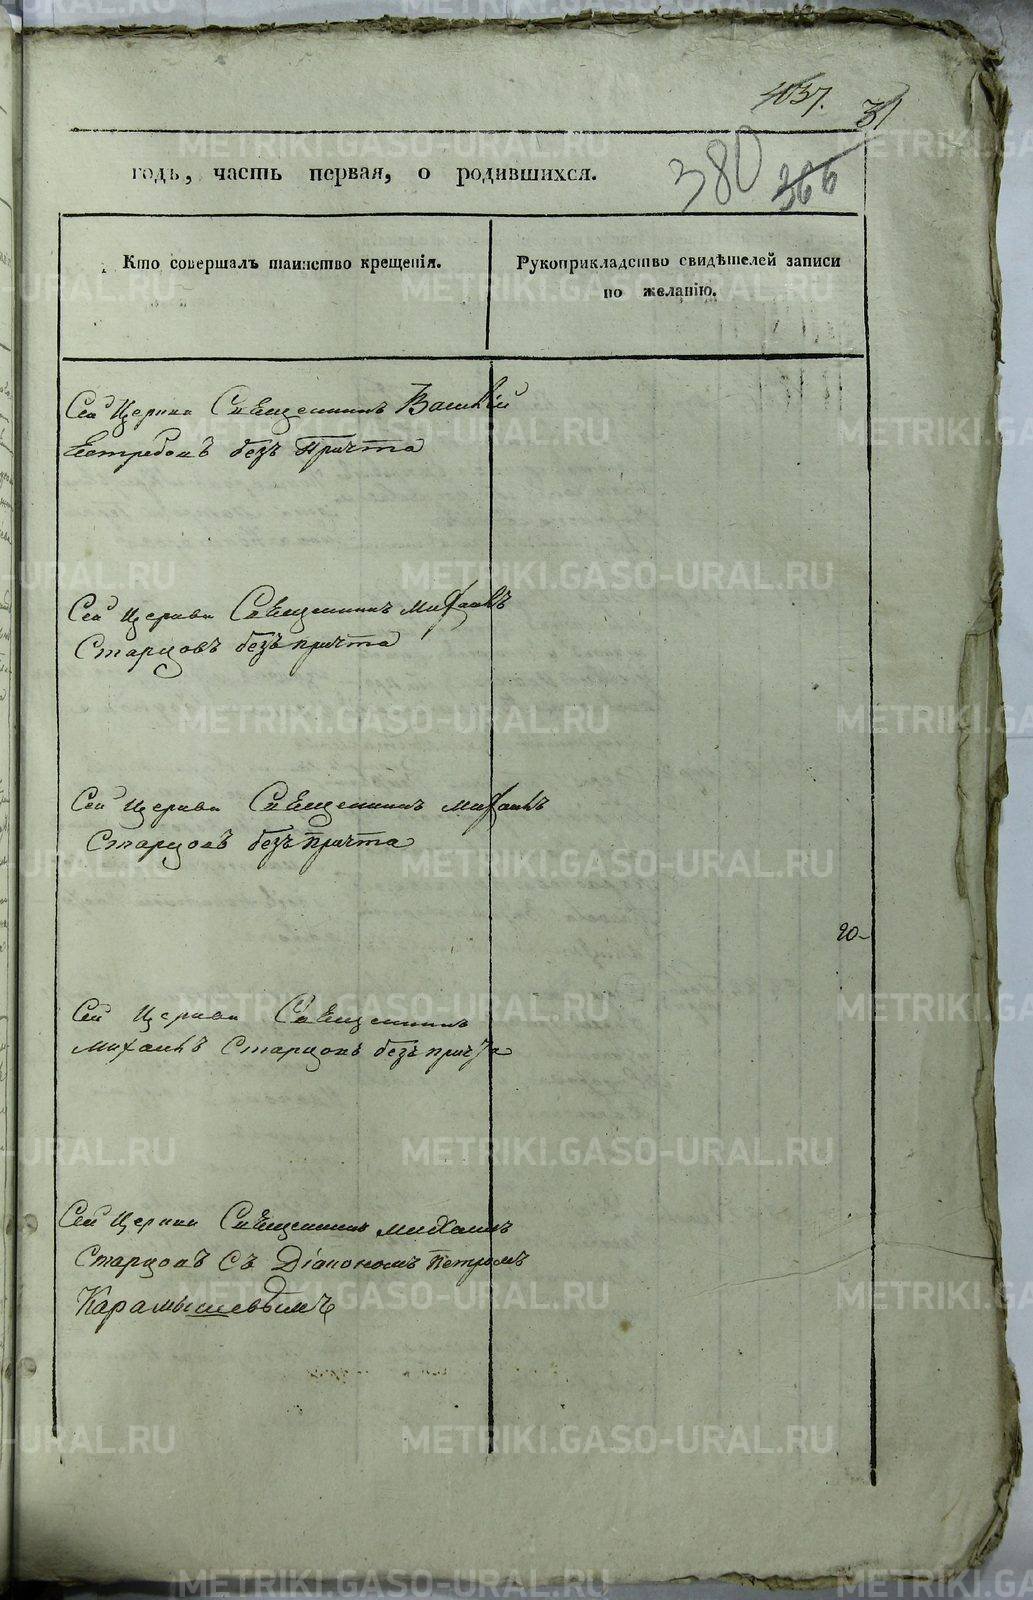 1037.
31
380
366
годъ, часть первая, о родившихся.
Кто совершалъ таинство крещенія.
Рукоприкладство свидѣтелей записи
по желанію.
Сей Церкви Священникъ Василій
Ястребовъ безъ Причта
Сей Церкви Священникъ Михаилъ
Старцовъ безъ причта
Сей Церкви Священникъ Михаилъ
Старцовъ безъ Причта
20
Сей Церкви Священникъ
Михаилъ Старцовъ безъ причта
Сей Церкви Священникъ Михаилъ
Старцовъ Съ Діакономъ Петромъ
Карамышевымъ
METRIKI.GASO-URAL.RU